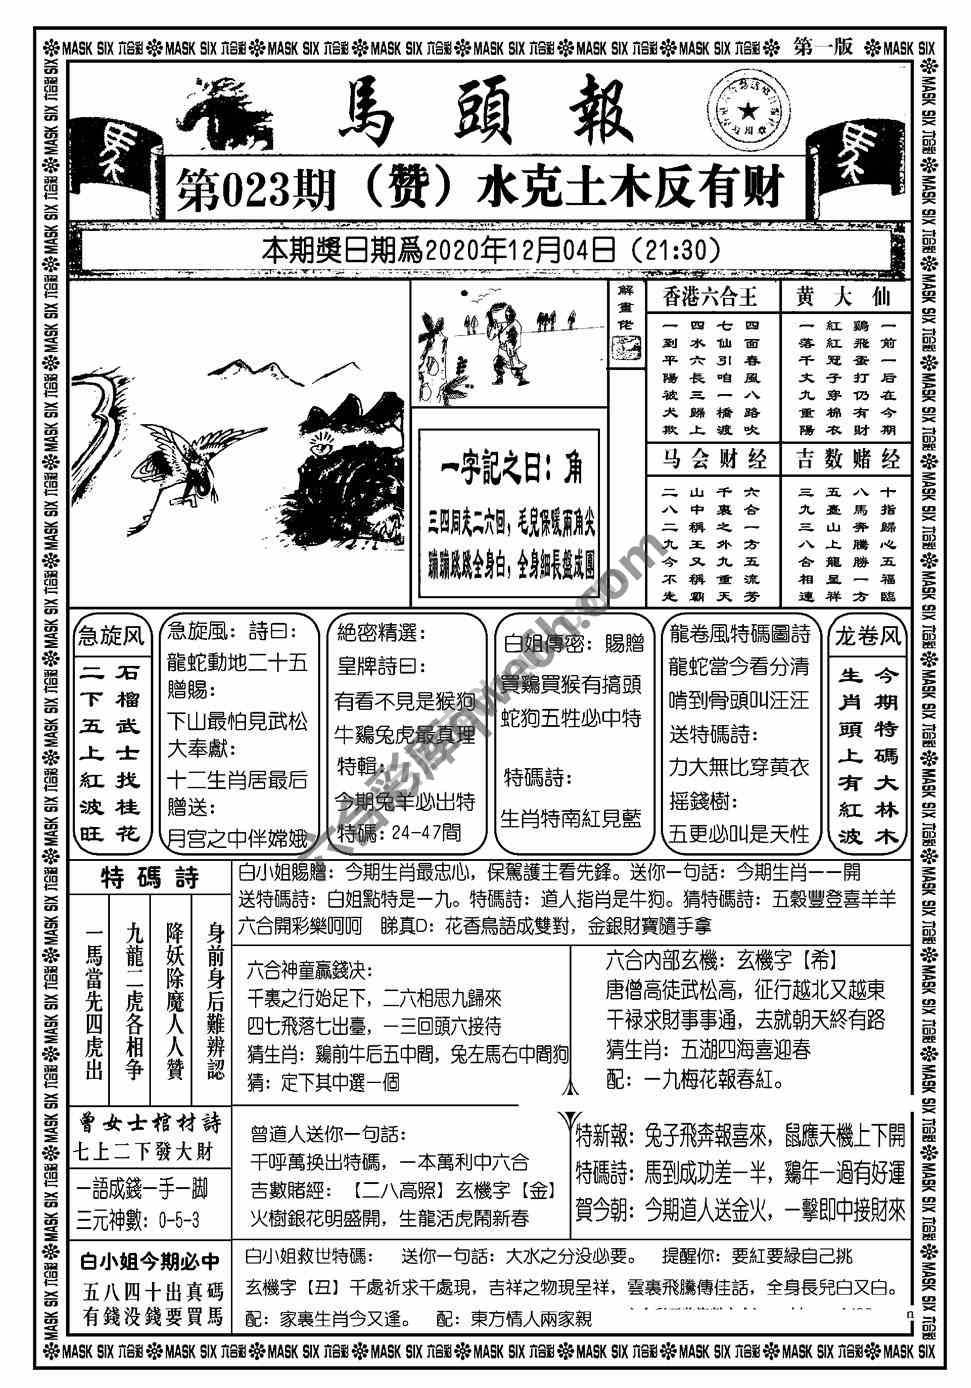 MASK SIX 六合彩 MASK SIX 六合彩 MASK SIX 六合彩 MASK SIX 六合彩 MASK SIX 六合彩 MASK SIX 六合彩 MASK SIX 六合彩 第一版 MASK SIX
馬頭報
第023期（赞）水克土木反有财
本期獎日期爲2020年12月04日（21:30）
解畫佬
一字記之曰：角
三四局走二六回，毛見保暖兩角尖
蹦蹦跳跳全身白，全身細長盤成團
香港六合王
四面春風八路吹
七仙引咱一橋渡
四水六長三歸上
一到平陽被犬欺
黄大仙
一前一后在今期
鷄飛蛋打仍有財
紅紅冠子穿棉衣
一落千丈九重陽
马会财经
六合一方五流芳
千裏之外九重天
山中稱王又稱霸
二八二九今不先
吉数赌经
十指歸心五福臨
八馬奔騰勝一方
五臺山上龍呈祥
三九三八合相連
急旋风
石榴武士找桂花
二下五上紅波旺
急旋風：詩曰：
龍蛇動地二十五
贈賜：
下山最怕見武松
大奉獻：
十二生肖居最后
贈送：
月宫之中伴嫦娥
絶密精選：
皇牌詩曰：
有看不見是猴狗
牛鷄兔虎最真理
特輯：
今期兔羊必出特
特碼：24-47間
白姐傳密：賜贈
買鷄買猴有搞頭
蛇狗五牲必中特
特碼詩：
生肖特南紅見藍
龍卷風特碼圖詩
龍蛇當今看分清
啃到骨頭叫汪汪
送特碼詩：
力大無比穿黄衣
摇錢樹：
五更必叫是天性
龙卷风
今期特碼大林木
生肖頭上有紅波
特碼詩
身前身后難辨認
降妖除魔人人贊
九龍二虎各相争
一馬當先四虎出
白小姐賜贈：今期生肖最忠心，保駕護主看先鋒。送你一句話：今期生肖一一開
送特碼詩：白姐點特是一九。特碼詩：道人指肖是牛狗。猜特碼詩：五穀豐登喜羊羊
六合開彩樂呵呵 睇真D：花香鳥語成雙對，金銀財寶隨手拿
六合神童贏錢决：
千裏之行始足下，二六相思九歸來
四七飛落七出臺，一三回頭六接待
猜生肖：鷄前牛后五中間，兔左馬右中間狗
猜：定下其中選一個
六合内部玄機：玄機字【希】
唐僧高徒武松高，征行越北又越東
干禄求財事事通，去就朝天終有路
猜生肖：五湖四海喜迎春
配：一九梅花報春紅。
曾女士棺材詩
七上二下發大財
一語成錢一手一脚
三元神數：0-5-3
曾道人送你一句話：
千呼萬换出特碼，一本萬利中六合
吉數賭經：【二八高照】玄機字【金】
火樹銀花明盛開，生龍活虎鬧新春
特新報：兔子飛奔報喜來，鼠應天機上下開
特碼詩：馬到成功差一半，鷄年一過有好運
賀今朝：今期道人送金火，一擊即中接財來
白小姐今期必中
五八四十出真碼
有錢没錢要買馬
白小姐救世特碼： 送你一句話：大水之分没必要。 提醒你：要紅要緑自己挑
玄機字【丑】千處祈求千處現，吉祥之物現呈祥，雲裏飛騰傳佳話，全身長兒白又白。
配：家裏生肖今又逢。 配：東方情人兩家親
MASK SIX 六合彩 MASK SIX 六合彩 MASK SIX 六合彩 MASK SIX 六合彩 MASK SIX 六合彩 MASK SIX 六合彩 MASK SIX 六合彩 MASK SIX 六合彩 MASK SIX